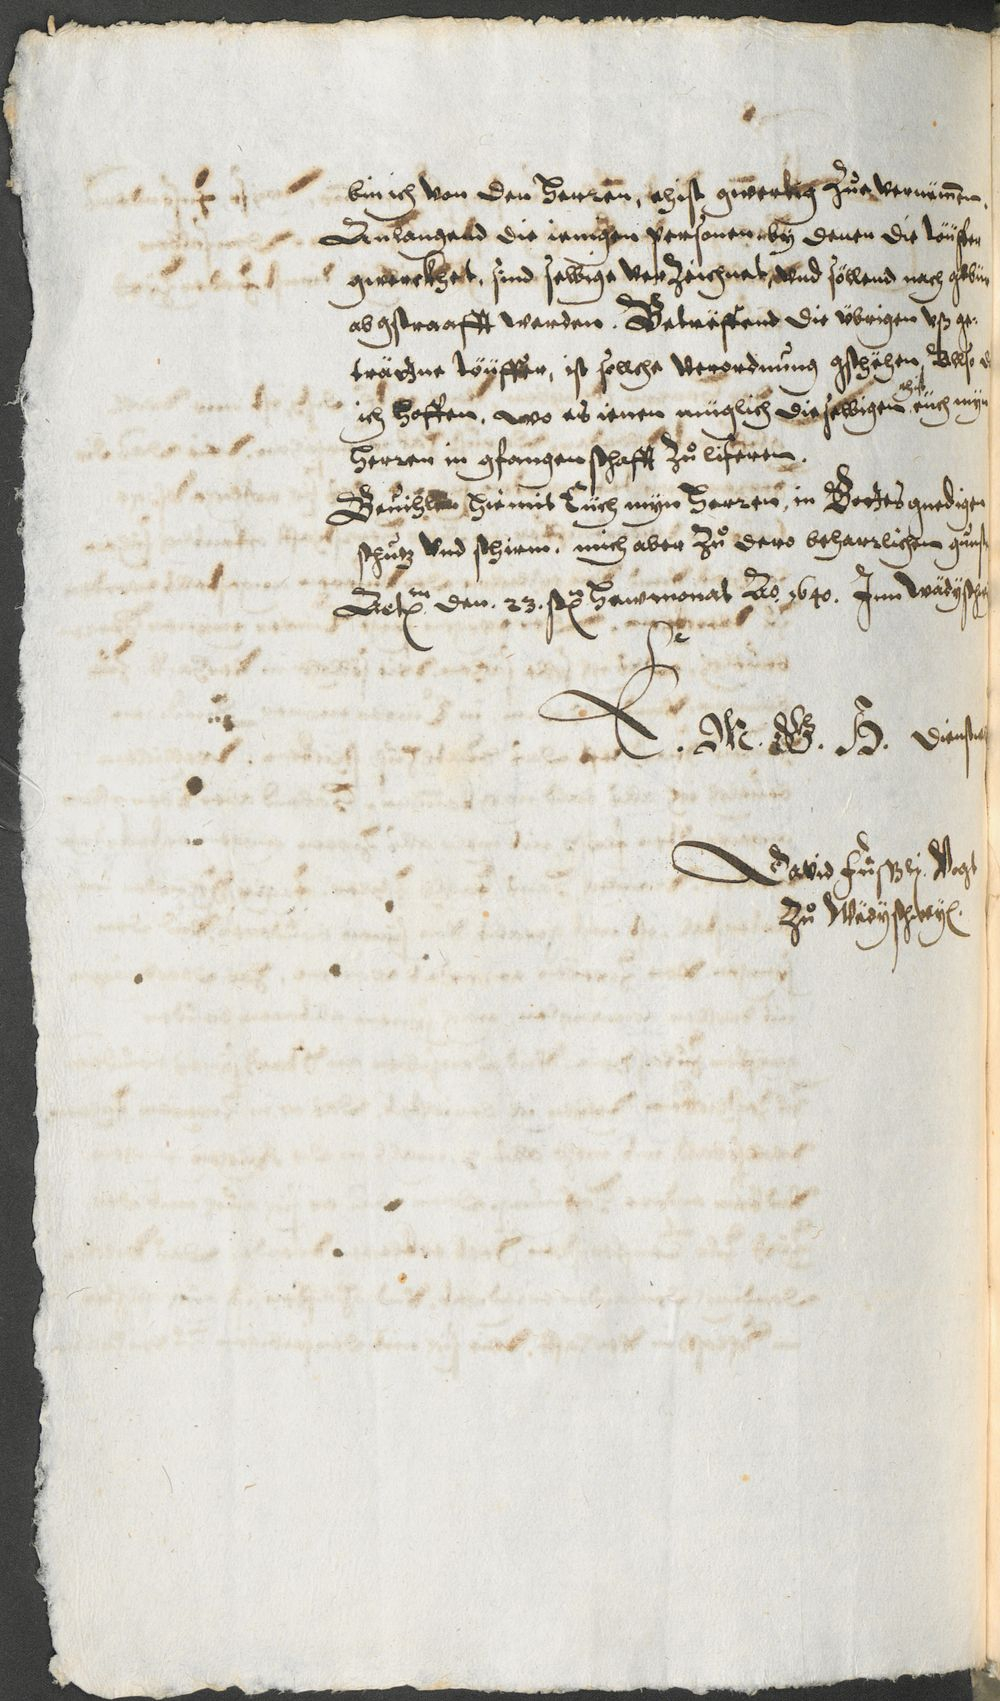 bin ich von den Herren, ehist gwertig Zuͦ vernëmen.
Anlangend die ienigen Personen by denen die töüffer
gwerckhet, sind selbige verzeichnet, und söllend nach gebür
abgstraafft werden. Beträffend die übrigen uß ge-
trättne töüffer, ist solche verordnung gschëhen, Also d
ich hoffen, wo es ienen müglich dieselbigen ehist euch myn
Herren in gfangenschafft Zuͦ liferen.
Bevihlen hiemit Euch myn Herren, in Gottes gnedigen
schutz und schirm. mich aber Zuͦ dero beharrlichen gunst
Actm den. 23. st. Hewmonat Ao. 1640. Inn Wädyschwy
Er
E. M. G. H. dienstw
David Füßli. Vogt
Zuͦ Wädyschwyl.